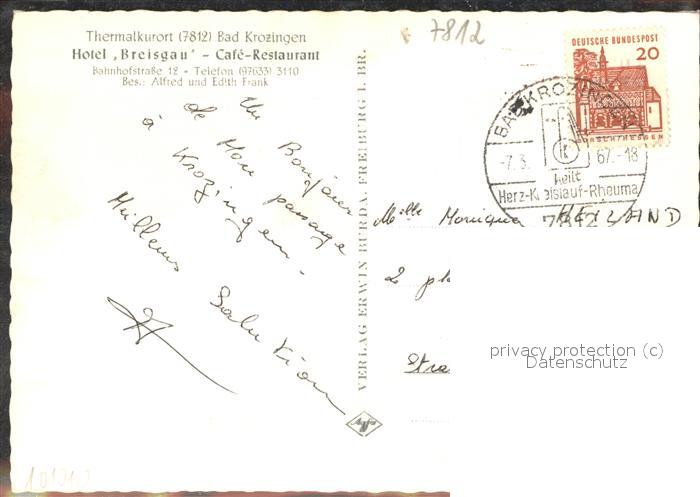 Thermalkurort (7812) Bad Krozingen
Hotel „Breisgau" - Café-Restaurant
Bahnhofstraße 12 - Telefon (97633) 3110
Bes.: Alfred und Edith Frank
7812
DEUTSCHE BUNDESPOST
20
LORSCH/HESSEN
BAD KROZINGEN
-7.3. 67.-18
heilt
Herz-Kreislauf-Rheuma
7812
Un Bonjour
de Mon passage
à Krozingen.
Meilleures Salutations
VERLAG ERWIN BURDA, FREIBURG I. BR.
Agfa
Melle Monique
2 pl
Stra
privacy protection (c)
Datenschutz